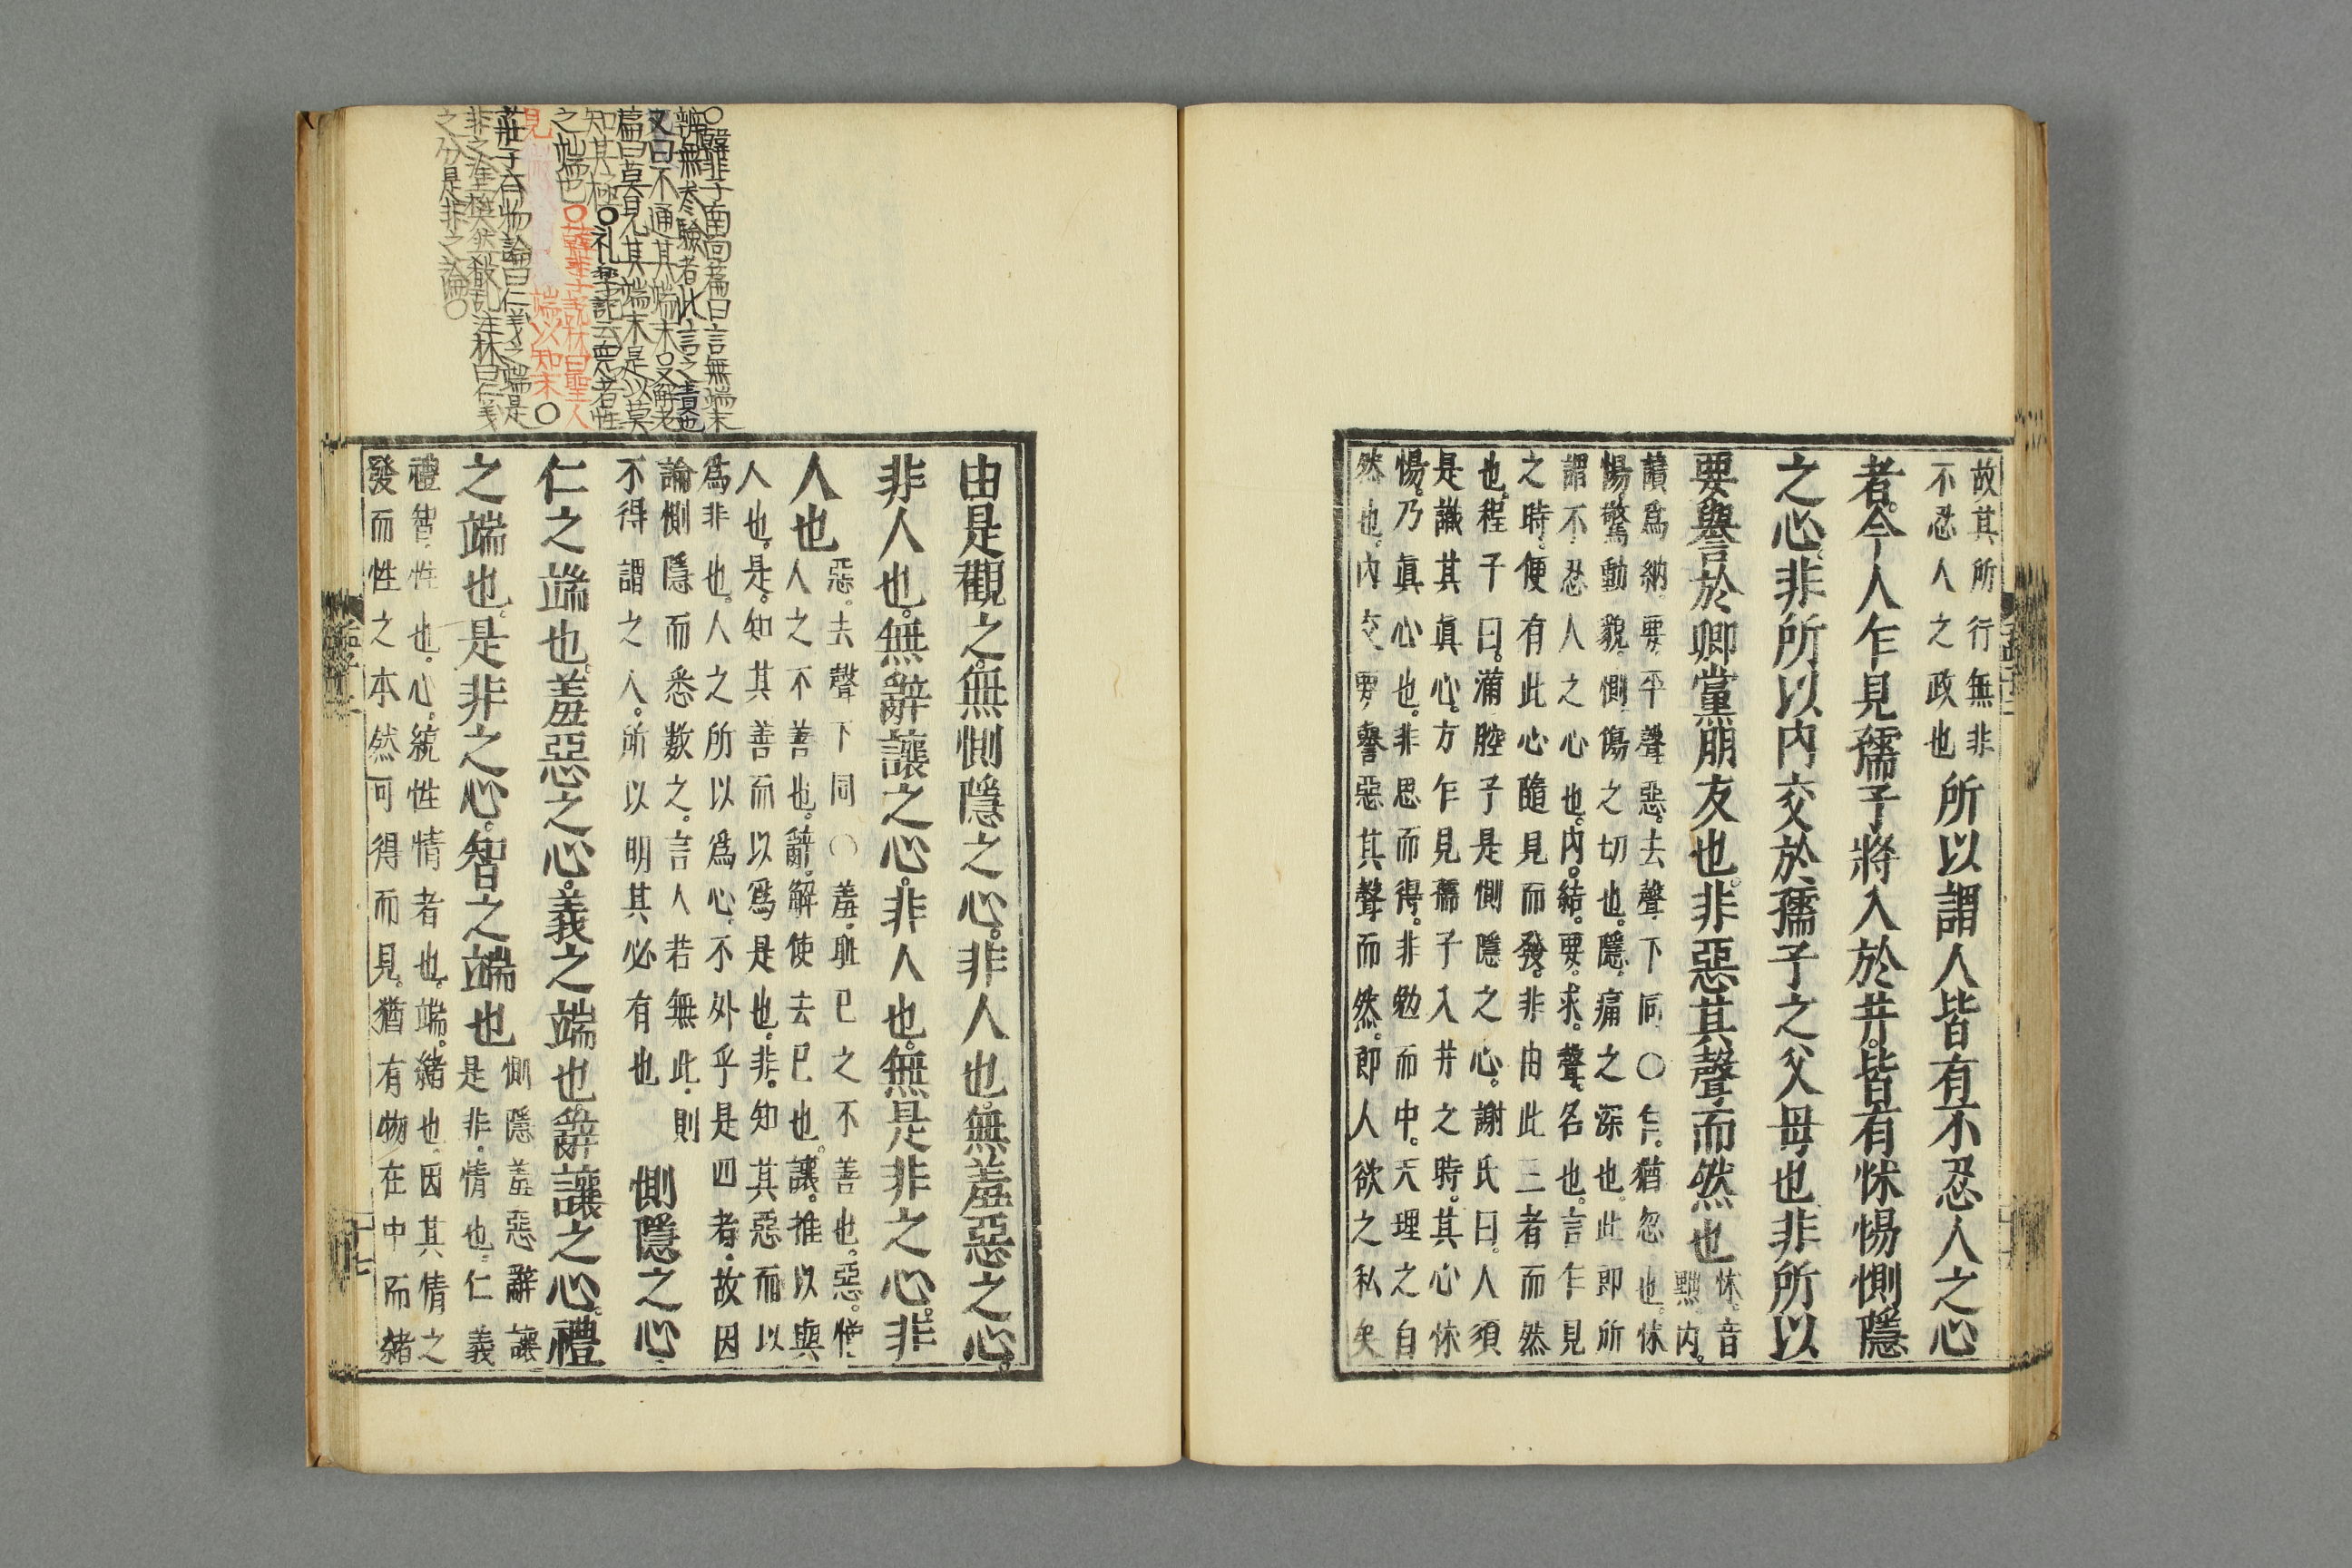 故其所行無非
不忍人之政也
所以謂人皆有不忍人之心
者。今人乍見孺子將入於井。皆有怵惕惻隱
之心。非所以內交於孺子之父母也。非所以
要譽於鄉黨朋友也。非惡其聲而然也
怵。音
黜。内。
讀爲納。要平聲惡。去聲下同〇乍。猶忽也。怵
惕。驚動貌。惻傷之切也。隱。痛之深也。此即所
謂不忍人之心也。内。結。要。求。聲。名也。言乍見
之時。便有此心隨見而發。非由此三者而然
也。程子曰。滿腔子是惻隱之心。謝氏曰。人須
是識其眞心。方乍見孺子入井之時。其心怵
惕。乃眞心也。非思而得。非勉而中。天理之自
然也。内交要譽惡其聲而然。即人欲之私矣
由是觀之。無惻隱之心。非人也。無羞惡之心。
非人也。無辭讓之心。非人也。無是非之心。非
人也
惡。去聲下同〇羞。耻已之不善也。惡。憎
人之不善也。辭。解使去已也。讓。推以與
人也。是。知其善而以爲是也。非。知其惡而以
爲非也。人之所以爲心。不外乎是四者。故因
論惻隱而悉數之。言人若無此。則
不得謂之人。所以明其必有也
惻隱之心
仁之端也。羞惡之心。義之端也。辭讓之心。禮
之端也。是非之心。智之端也
惻隱羞惡辭讓
是非。情也。仁義
禮智。性也。心。統性情者也。端。緒也。因其情之
發而性之本然可得而見。猶有物在中而緒
〇韓非子南面篇曰言無端末
辨無參驗者此言之責也
又曰不通其端末〇又解老
篇曰莫見其端末是以莫
知其極〇礼樂記云樂者性
之端也〇韓非子說林曰聖人
見微 端以知末〇
莊子齊物論曰仁義之端是
非之塗樊然殽亂注林曰仁義
之分是非之論〇
孟子二
十七